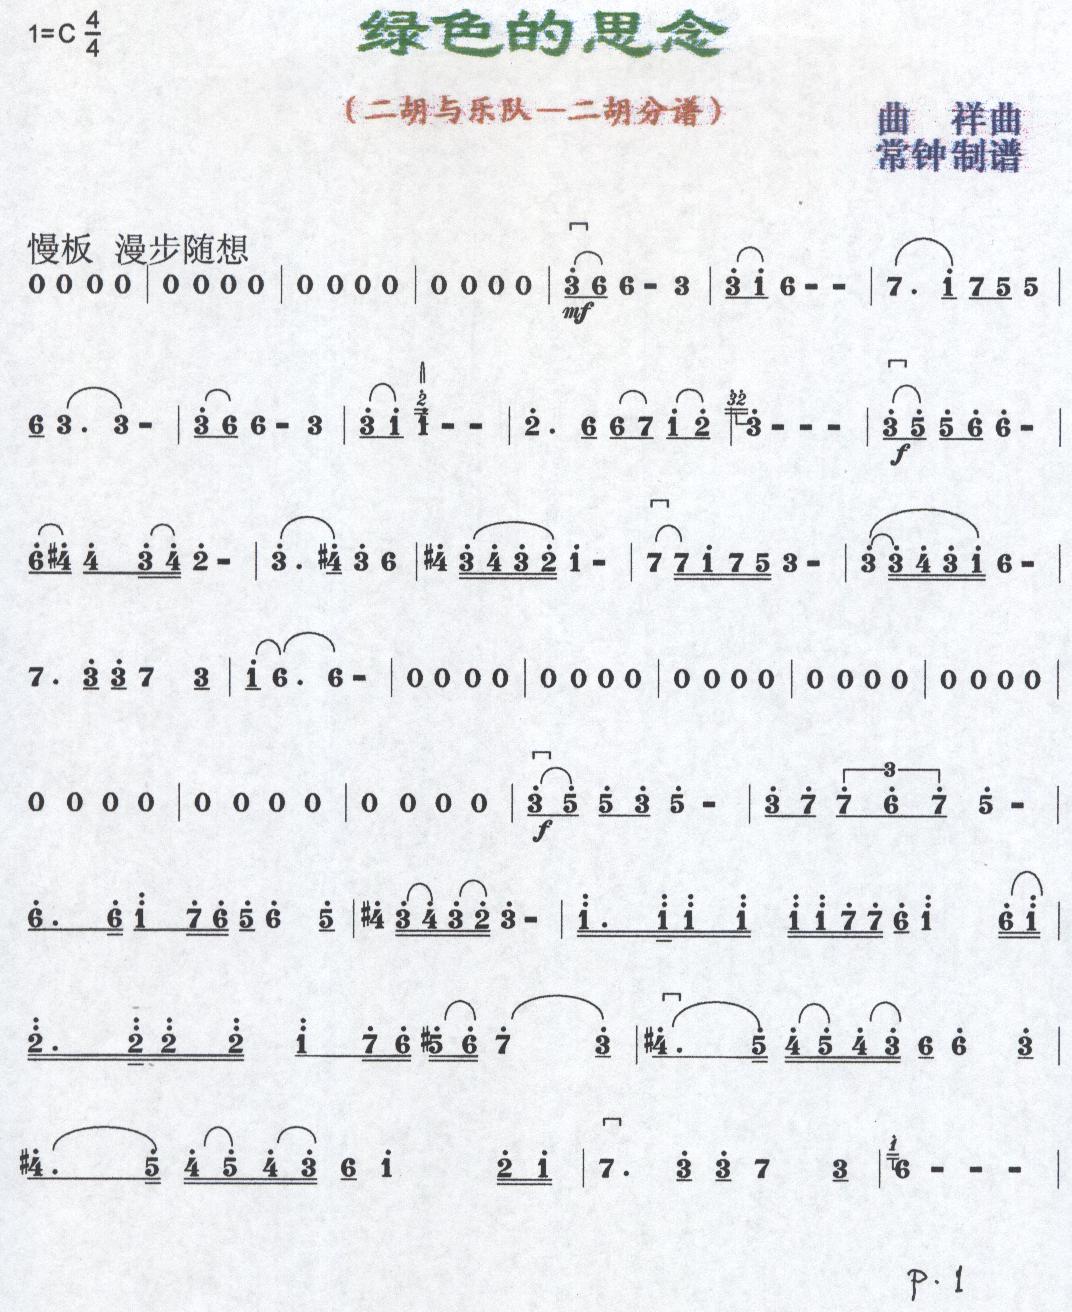 1=C 4/4
绿色的思念
(二胡与乐队—二胡分谱)
曲 祥曲
常钟制谱
慢板 漫步随想
0 0 0 0 | 0 0 0 0 | 0 0 0 0 | 0 0 0 0 | 3 6 6 - 3 | 3 i 6 - - | 7 . i 7 5 5 |
mf
6 3 . 3 - | 3 6 6 - 3 | 3 i 2 i - - | 2 . 6 6 7 i 2 | 32 3 - - - | 3 5 5 6 6 - |
f
6 #4 4 3 4 2 - | 3 . #4 3 6 | #4 3 4 3 2 i - | 7 7 i 7 5 3 - | 3 3 4 3 i 6 - |
7 . 3 3 7 3 | i 6 . 6 - | 0 0 0 0 | 0 0 0 0 | 0 0 0 0 | 0 0 0 0 | 0 0 0 0 |
3
0 0 0 0 | 0 0 0 0 | 0 0 0 0 | 3 5 5 3 5 - | 3 7 7 6 7 5 - |
f
6 . 6 i 7 6 5 6 5 | #4 3 4 3 2 3 - | i . i i i i i 7 7 6 i 6 i |
2 . 2 2 2 i 7 6 #5 6 7 3 | #4 . 5 4 5 4 3 6 6 3 |
#4 . 5 4 5 4 3 6 i 2 i | 7 . 3 3 7 3 | i 6 - - - |
p.1